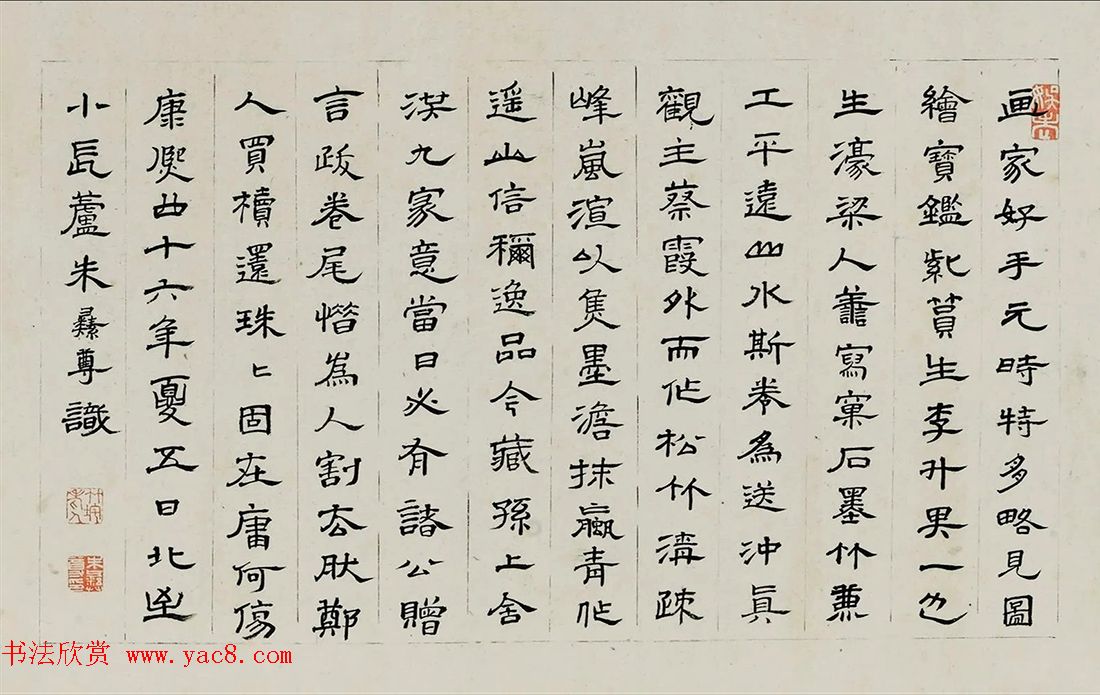 画家好手元時特多略見圖
繪寶鑑紫篔生李升其一也
生濠梁人善寫窠石墨竹兼
工平遠山水斯卷為送沖真
觀主蔡霞外而作松竹溝疎
峰嵐渲以焦墨澹抹蠃青作
遥山信稱逸品今藏孫上舍
漢九家意當日必有諸公贈
言跋卷尾惜為人割去狀鄭
人買櫝還珠〻固在庸何傷
康熙四十六年夏五日北至
小長蘆朱彝尊識
竹垞老人
朱彝尊印
书法欣赏 www.yac8.com